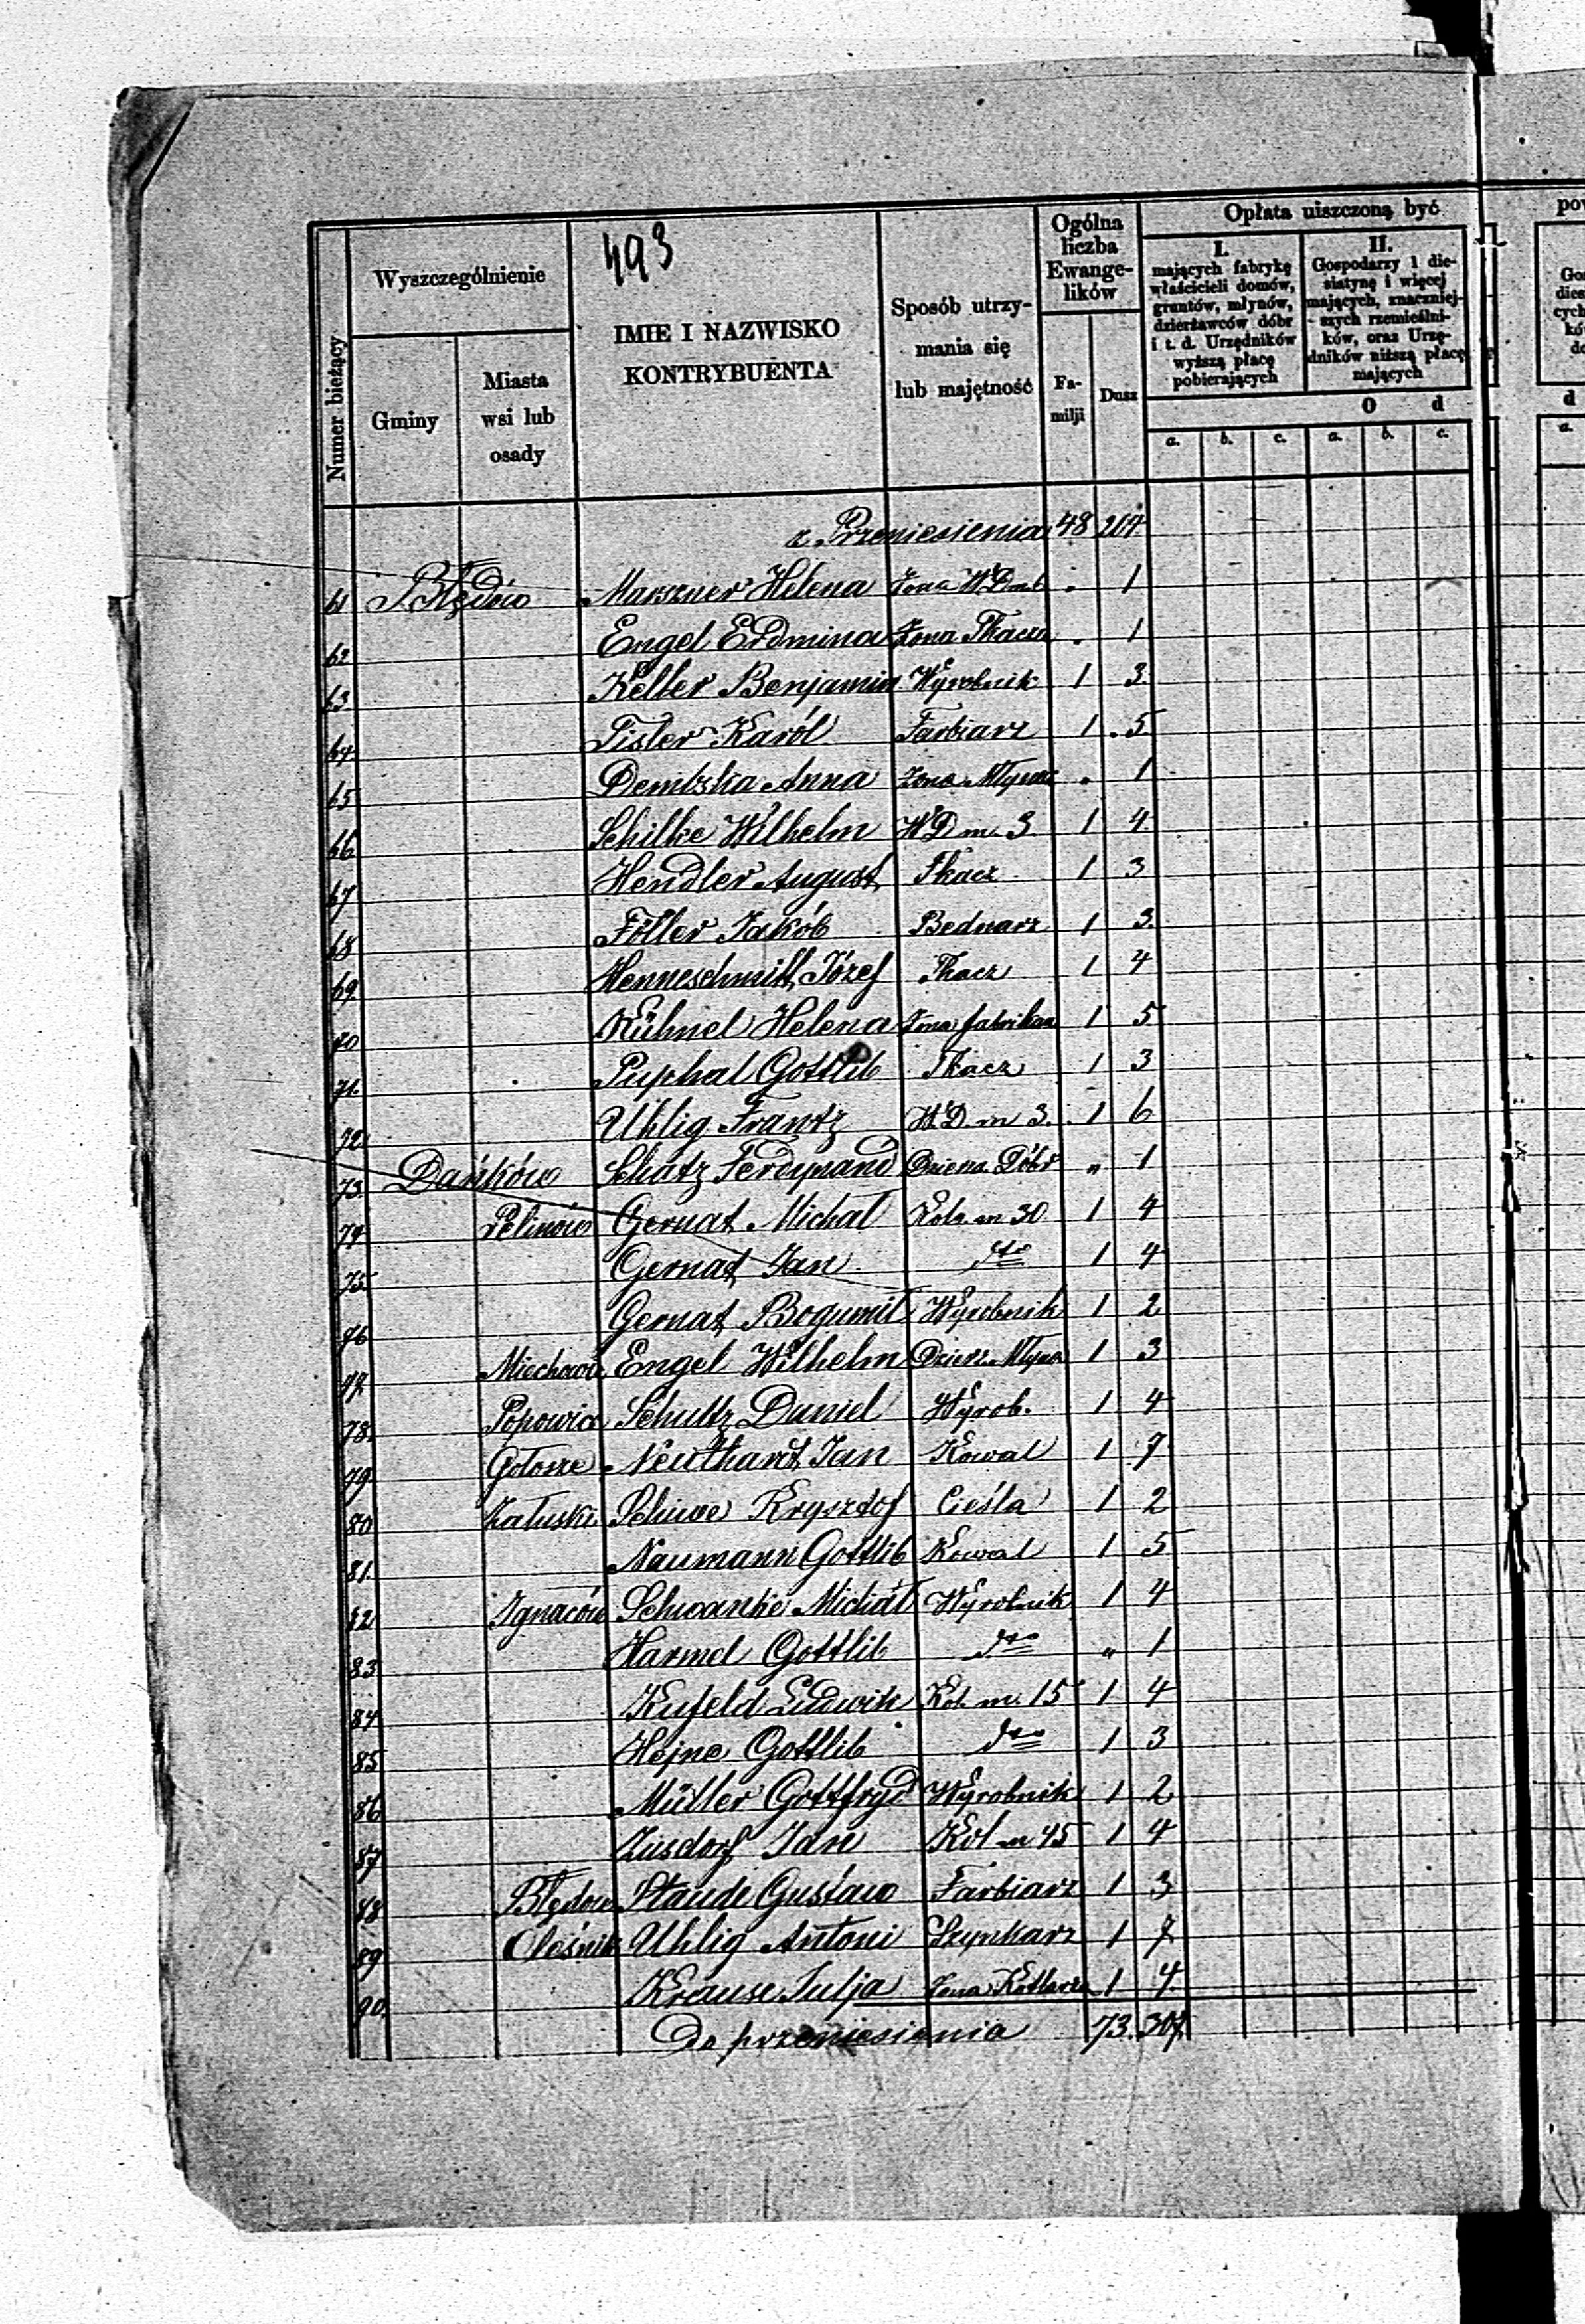 493
Numer bieżący
Wyszczególnienie
Gminy
Miasta
wsi lub
osady
IMIE I NAZWISKO
KONTRYBUENTA
Sposób utrzy-
mania się
lub majętność
Ogólna
liczba
Ewange-
lików
Fa-
milji
Dusz
Opłata uiszczoną być
I.
mających fabrykę
właścicieli domów,
gruntów, młynów,
dzierżawców dóbr
i t. d. Urzędników
wyższą płacę
pobierających
II.
Gospodarzy 1 die-
siatynę i więcej
mających, znaczniej-
szych rzemieślni-
ków, oraz Urzę-
dników niższą płacę
mających
O d
a. b. c. a. b. c.
z Przeniesienia 48 214
61 Błędów Marszner Helena Żona W.D m6 . 1
62 Engel Erdmina Żona Tkacza . 1
63 Keller Benjamin Wyrobnik 1 3
64 Tisler Karól Farbiarz 1 5
65 Dembska Anna Żona Młynar . 1
66 Schilke Wilhelm W D m. 3 1 4
67 Hendler August Tkacz 1 3
68 Föller Jakób Bednarz 1 3.
69 Henneschmitt Józef Tkacz 1 4
70 Kühnel Helena Żona fabrikan 1 5
71. Puphal Gottlib Tkacz 1 3
72. Uhlig Frantz W.D. m 3. 1 6
73. Dańków Schatz Ferdynand Dzierża Dóbr " 1
74. Pelinów Gernat Michał Kolo. m 30 1 4
75. Gernat Jan dto 1 4
76 Gernat Bogumił Wyrobnik 1 2
77. Miechowic Engel Wilhelm Dzierż. Młyna 1 3
78. Popowice Schultz Daniel Wyrob. 1 4
79 Gołosze Neuthardt Jan Kowal 1 7
80 Załuski Krysztof Cieśla 1 2
81. Naumann Gottlib Kowal 1 5
82 Ignaców Schwanke Michał Wyrobnik 1 4
83 Harmel Gottlib dto " 1
84 Kufeld Ludwik Kol. m. 15 1 4
85 Hejne Gottlib dto 1 3
86 Müller Gottfryd Wyrobnik 1 2
87 Zusdorf Jan Kol m 45 1 4
88 Błędów Staude Gustaw Farbiarz 1 3
89 Oleśnik Uhlig Antoni Szynkarz 1 7
90. Krause Julja Żona Kotlarza 1 4
Do przeniesienia 73. 307.